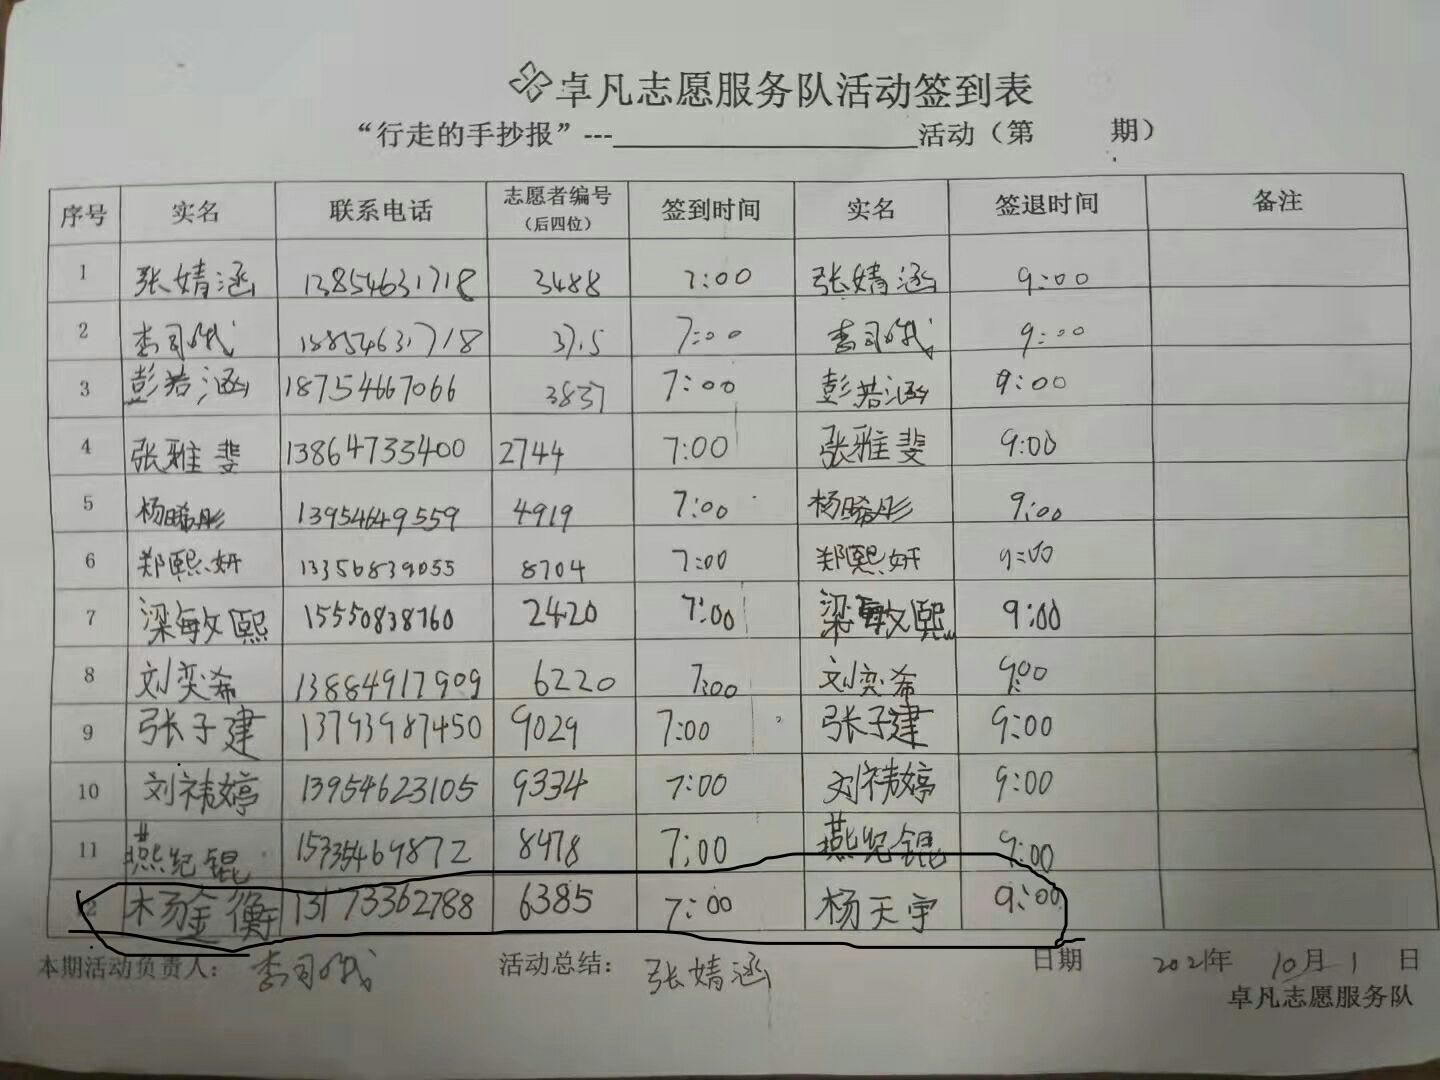 卓凡志愿服务队活动签到表
“行走的手抄报”---活动（第 期）
序号 实名 联系电话 志愿者编号（后四位） 签到时间 实名 签退时间 备注
1 张婧涵 13854631718 3488 7:00 张婧涵 9:00
2 李司晗 13854631718 3715 7:00 李司晗 9:00
3 彭若涵 18754667066 3837 7:00 彭若涵 9:00
4 张雅斐 13864733400 2744 7:00 张雅斐 9:00
5 杨晞彤 13954649559 4919 7:00 杨晞彤 9:00
6 郑熙妍 13356839055 8704 7:00 郑熙妍 9:00
7 梁敏熙 15550838760 2420 7:00 梁敏熙 9:00
8 刘奕希 13884917909 6220 7:00 刘奕希 9:00
9 张子建 13793987450 9029 7:00 张子建 9:00
10 刘祎婷 13954623105 9334 7:00 刘祎婷 9:00
11 燕纪锟 8478 7:00 燕纪锟 9:00
12 杨金衡 13173362788 6385 7:00 杨天宇 9:00
本期活动负责人： 李司晗 活动总结： 张婧涵 日期 2021年 10月 1 日
卓凡志愿服务队